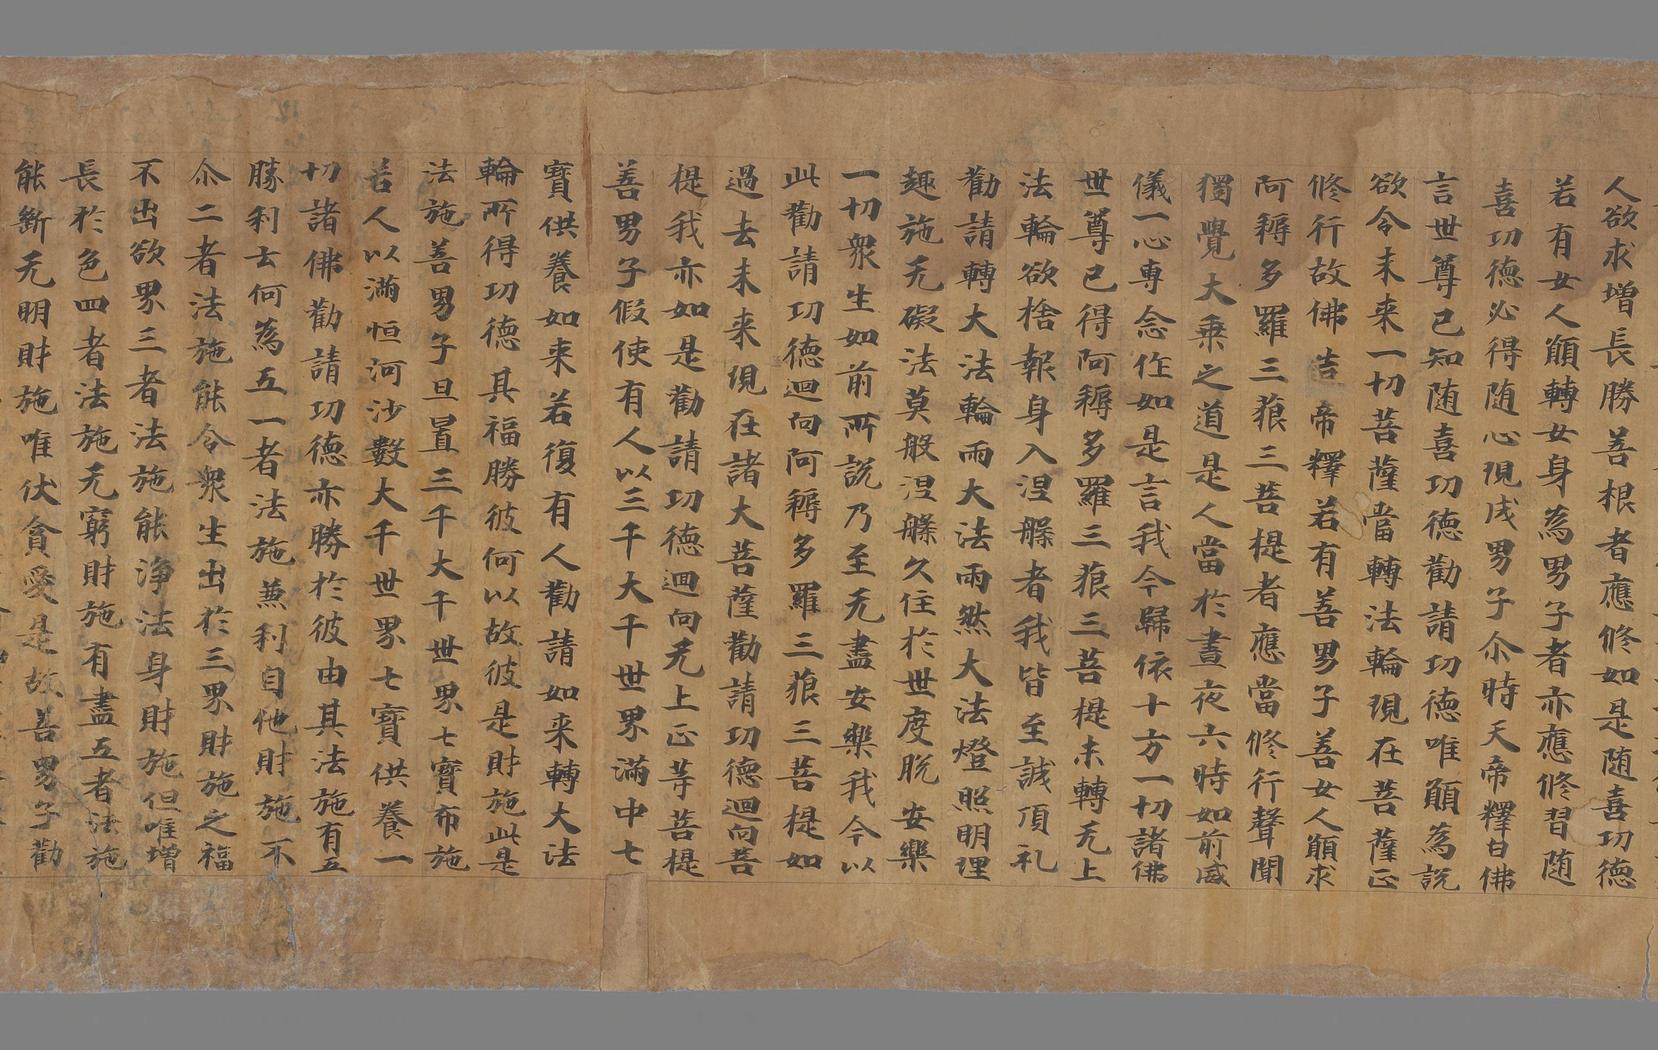 人欲求增長勝善根者應修如是随喜功德
若有女人願轉女身為男子者亦應修習随
喜功德必得随心現成男子尒時天帝釋白佛
言世尊已知随喜功德勸請功德唯願為說
欲令未来一切菩薩當轉法輪現在菩薩正
修行故佛告帝釋若有善男子善女人願求
阿耨多羅三藐三菩提者應當修行聲聞
獨覺大乗之道是人當於晝夜六時如前威
儀一心專念作如是言我今歸依十方一切諸佛
世尊已得阿耨多羅三藐三菩提未轉无上
法輪欲捨報身入涅槃者我皆至誠頂礼
勸請轉大法輪雨大法雨然大法燈照明理
趣施无礙法莫般涅槃久住於世度脱安樂
一切衆生如前所說乃至无盡安樂我今以
此勸請功德迴向阿耨多羅三藐三菩提如
過去未来現在諸大菩薩勸請功德迴向菩
提我亦如是勸請功德迴向无上正等菩提
善男子假使有人以三千大千世界滿中七
寶供養如来若復有人勸請如来轉大法
輪所得功德其福勝彼何以故彼是財施此是
法施善男子且置三千大千世界七寶布施
若人以滿恒河沙數大千世界七寶供養一
切諸佛勸請功德亦勝於彼由其法施有五
勝利云何為五一者法施兼利自他財施不
尒二者法施能令衆生出於三界財施之福
不出欲界三者法施能淨法身財施但唯增
長於色四者法施无窮財施有盡五者法施
能斷无明財施唯伏貪愛是故善男子勸